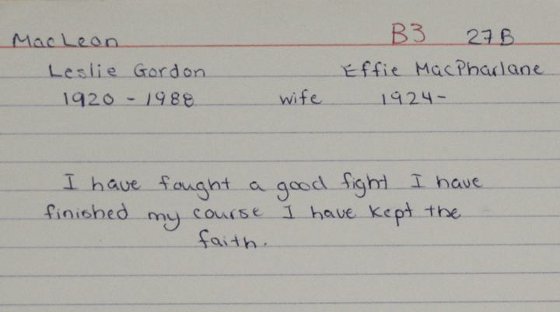 MacLean B3 27B
Leslie Gordon Effie MacPharlane
1920 - 1988 wife 1924-
I have fought a good fight I have
finished my course I have kept the
faith.